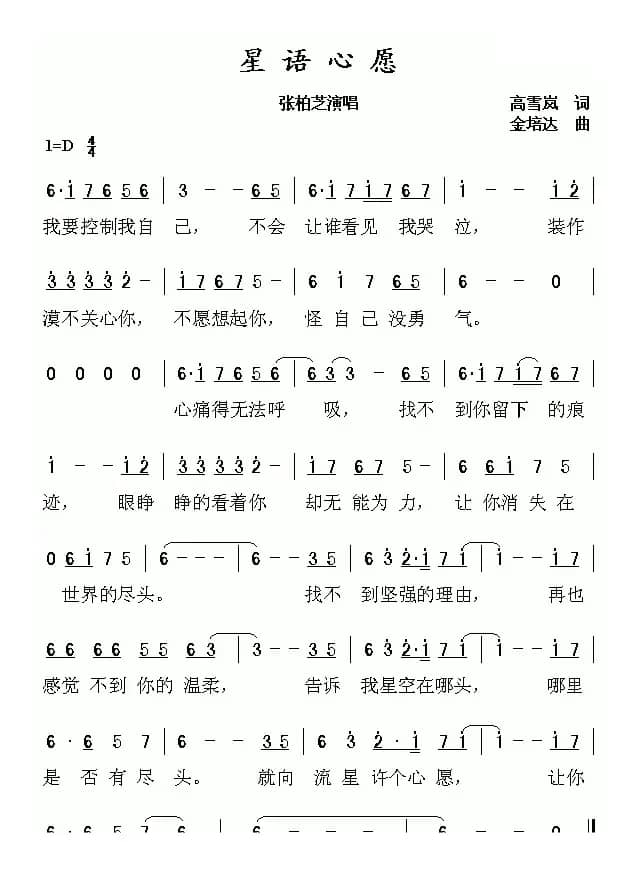 星语心愿
张柏芝演唱
高雪岚 词
金培达 曲
1=D 4/4
6·i 7 6 5 6 | 3 - - 6 5 | 6·i 7 i 7 6 7 | i - - i 2̇ |
我要控制我自 己， 不会 让谁看见 我哭 泣， 装作
3̇ 3̇ 3̇ 3̇ 2̇ - | i 7 6 7 5 - | 6 i 7 6 5 | 6 - - 0 |
漠不关心你， 不愿想起你， 怪 自 己 没勇 气。
0 0 0 0 | 6·i 7 6 5 6 | 6 3 3 - 6 5 | 6·i 7 i 7 6 7 |
心痛得无法呼 吸， 找不 到你留下 的痕
i - - i 2̇ | 3̇ 3̇ 3̇ 3̇ 2̇ - | i 7 6 7 5 | 6 6 i 7 5 |
迹， 眼睁 睁的看着你 却无 能为 力， 让 你消 失 在
0 6 i 7 5 | 6 - - - | 6 - - 3 5 | 6 3 2̇·i 7 i | i - - i 7 |
世界的尽头。 找不 到坚强的理由， 再也
6 6 6 6 5 5 6 3 | 3 - - 3 5 | 6 3̇ 2̇·i 7 i | i - - i 7 |
感觉 不到 你的 温柔， 告诉 我星空在哪头， 哪里
6 · 6 5 7 | 6 - - 3 5 | 6 3̇ 2̇ · i 7 i | i - - i 7 |
是 否 有 尽 头。 就向 流 星 许个心 愿， 让你